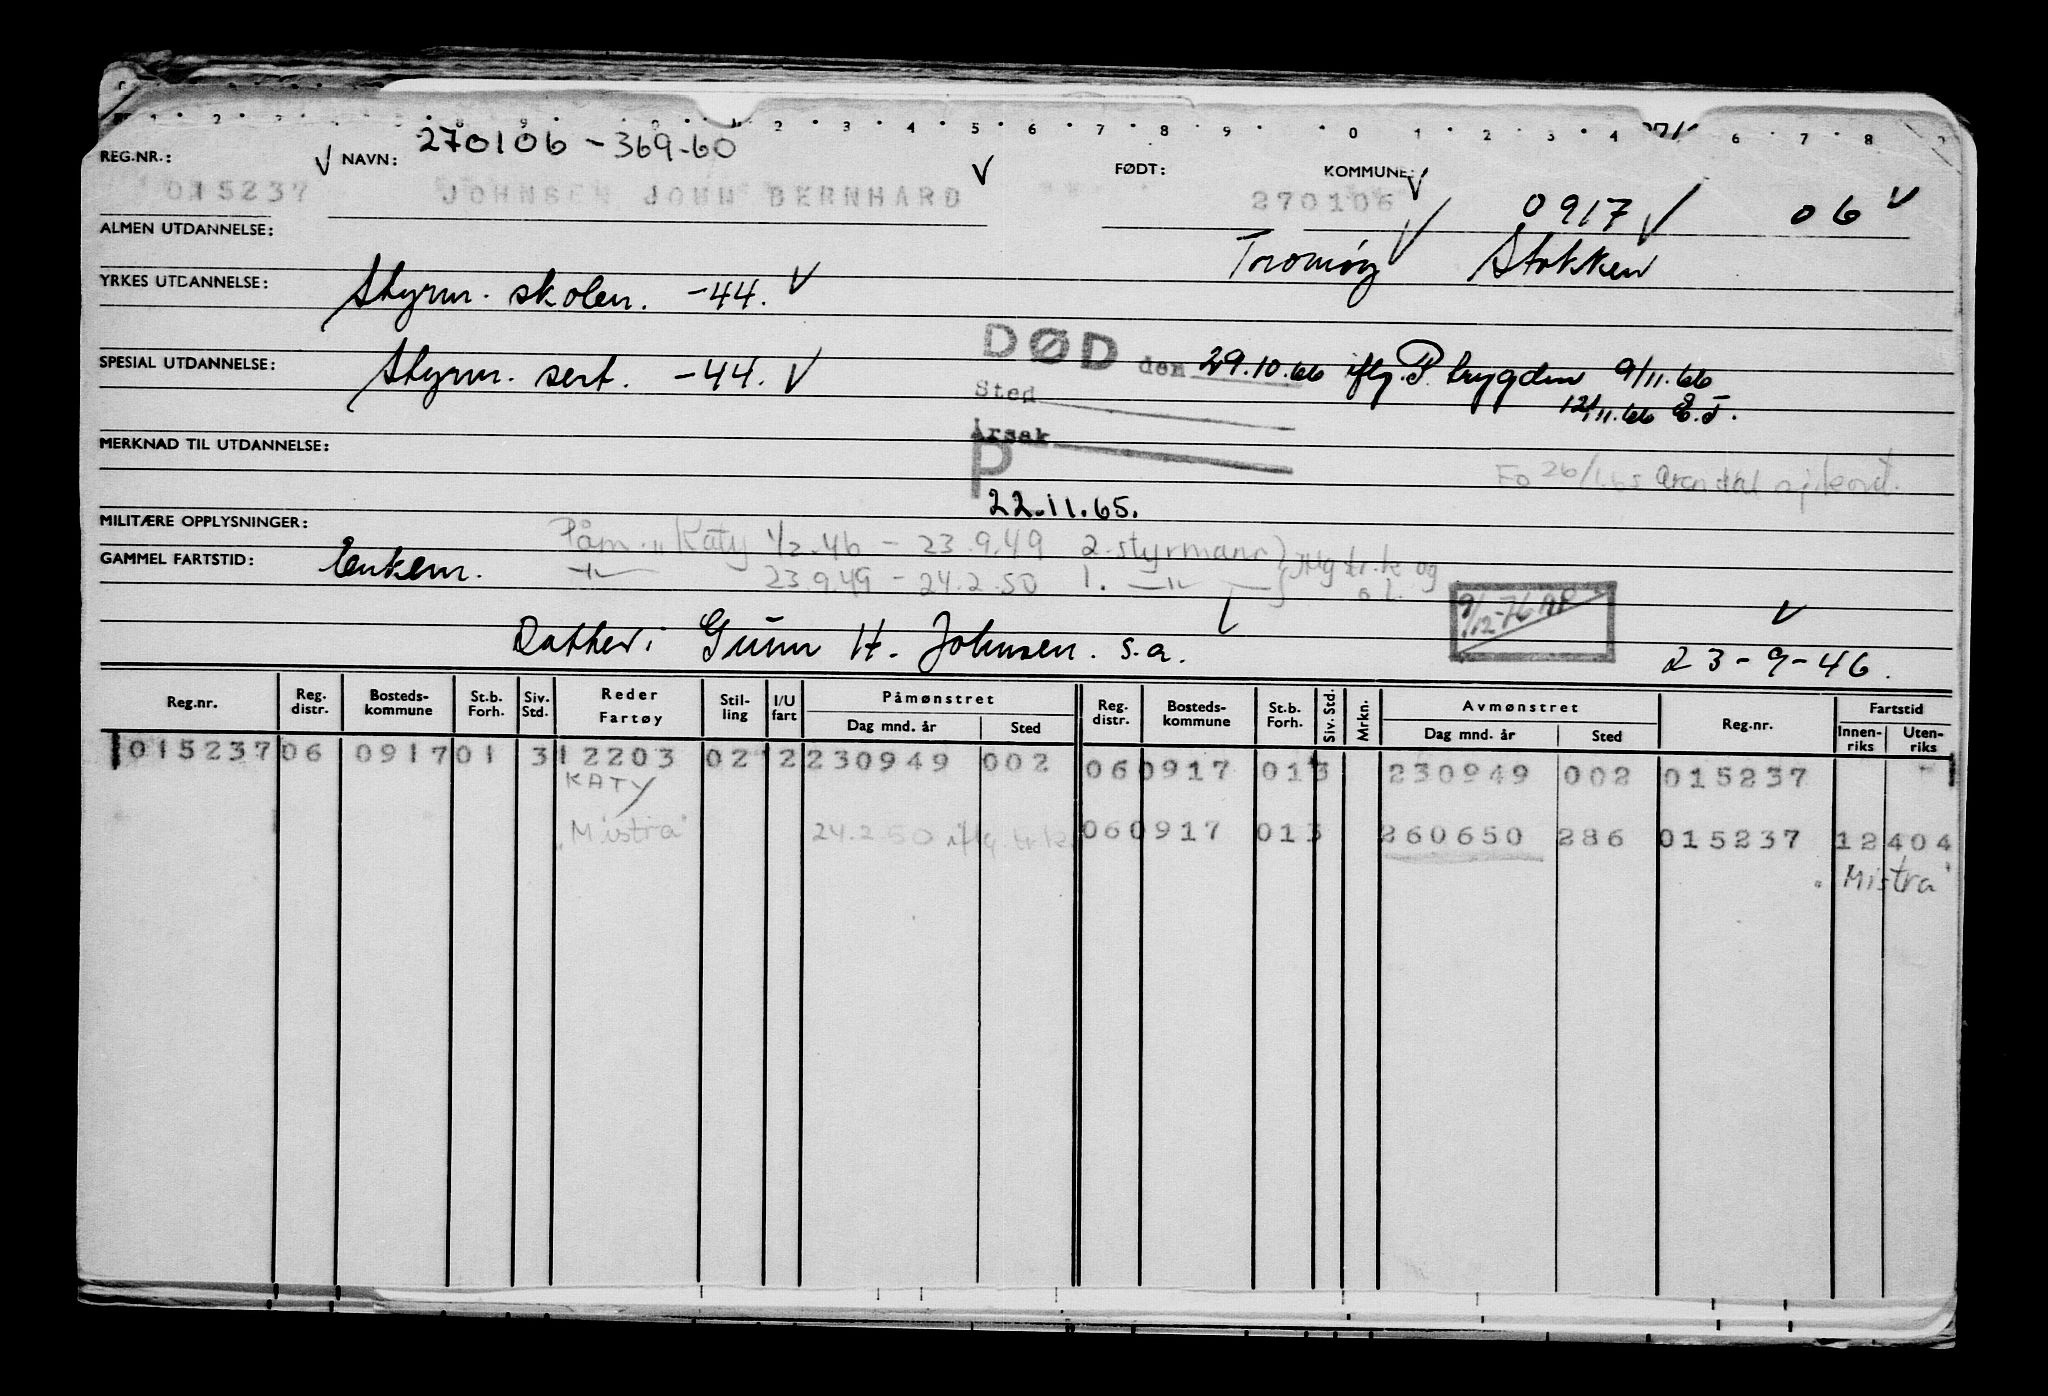 270106 - 369-60
REG.NR.: NAVN: FØDT: KOMMUNE:
015237 JOHNSEN JOHN BERNHARD 270106 0917 06
ALMEN UTDANNELSE: Tromøy Stokken
YRKES UTDANNELSE: Styrm. skolen. -44.
SPESIAL UTDANNELSE: Styrm. sert. -44.
DØD den 29.10.66 iflg. P. trygden 9/11.66
Sted 12/11.66 E.T.
Årsak
MERKNAD TIL UTDANNELSE:
P
22.11.65.
Fo 26/1.65 Arendal sj.kont.
MILITÆRE OPPLYSNINGER:
Påm. "Katy 1/2.46 - 23.9.49 2. styrmann
GAMMEL FARTSTID: Enkem.
23.9.49 - 24.2.50 1. —"—
iflg tr.k og
9/12-76
Datter: Gunn H. Johnsen. s.a.
23-9-46.
Reg.nr. Reg. distr. Bosteds-kommune St.b. Forh. Siv. Std. Reder Fartøy Stil-ling I/U fart Påmønstret Dag mnd. år Sted Reg. distr. Bosteds-kommune St.b. Forh. Siv. Std. Mrkn. Avmønstret Dag mnd. år Sted Reg.nr. Fartstid Innen-riks Uten-riks
015237 06 0917 01 3 12203 02 2 230949 002 06 0917 01 3 230949 002 015237
KATY
"Mistra" 24.2.50 iflg. tr.k. 06 0917 01 3 260650 286 015237 12404
"Mistra"